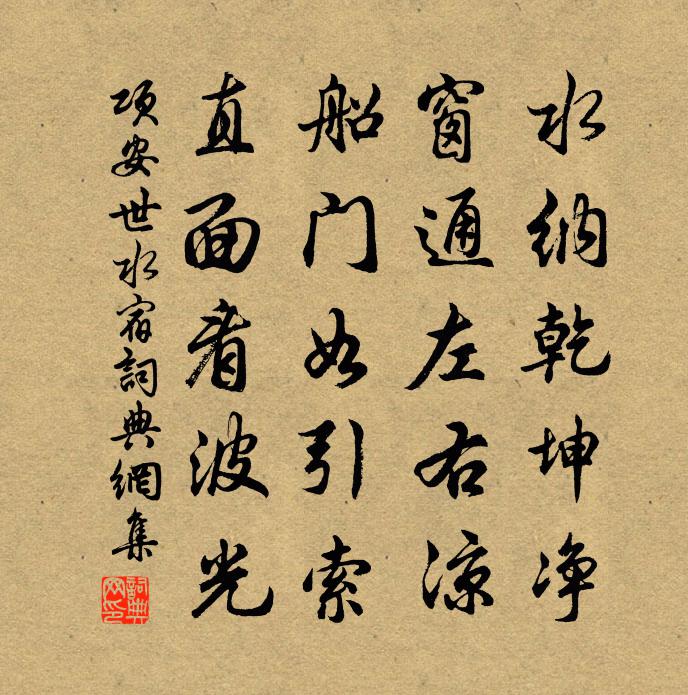 水纳乾坤净
窗通左右凉
船门如引索
直面看波光
项安世水宿詞典網集
詞典網印